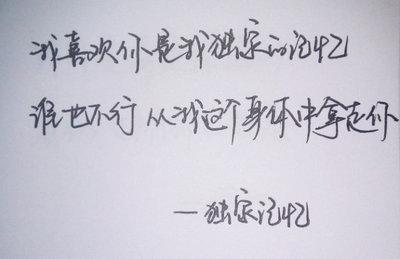 我喜欢你是我独家的记忆
谁也不行 从我这个身体中拿走你
—独家记忆